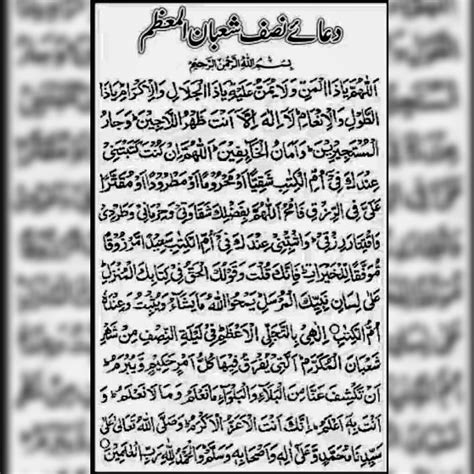 دعائے نصف شعبان المعظم
بِسْمِ اللهِ الرَّحْمٰنِ الرَّحِيْمِ
اَللّٰهُمَّ يَاذَا الْمَنِّ وَلَا يُمَنُّ عَلَيْهِ يَاذَا الْجَلَالِ وَالْاِكْرَامِ يَاذَا
الطَّوْلِ وَالْاِنْعَامِ لَا اِلٰهَ اِلَّا اَنْتَ ظَهْرُ اللَّاجِيْنَ وَجَارُ
الْمُسْتَجِيْرِيْنَ وَاَمَانُ الْخَائِفِيْنَ اَللّٰهُمَّ اِنْ كُنْتَ كَتَبْتَنِيْ
عِنْدَكَ فِيْ اُمِّ الْكِتٰبِ شَقِيًّا اَوْ مَحْرُوْمًا اَوْ مَطْرُوْدًا اَوْ مُقَتَّرًا
عَلَيَّ فِي الرِّزْقِ فَامْحُ اللّٰهُمَّ بِفَضْلِكَ شَقَاوَتِيْ وَحِرْمَانِيْ وَطَرْدِيْ
وَاقْتِتَارَ رِزْقِيْ وَاَثْبِتْنِيْ عِنْدَكَ فِيْ اُمِّ الْكِتٰبِ سَعِيْدًا مَّرْزُوْقًا
مُّوَفَّقًا لِّلْخَيْرَاتِ فَاِنَّكَ قُلْتَ وَقَوْلُكَ الْحَقُّ فِيْ كِتَابِكَ الْمُنَزَّلِ
عَلٰى لِسَانِ نَبِيِّكَ الْمُرْسَلِ يَمْحُو اللهُ مَا يَشَاءُ وَيُثْبِتُ وَعِنْدَهٗ
اُمُّ الْكِتٰبِ اِلٰهِيْ بِالتَّجَلِّي الْاَعْظَمِ فِيْ لَيْلَةِ النِّصْفِ مِنْ شَهْرِ
شَعْبَانَ الْمُكَرَّمِ الَّتِيْ يُفْرَقُ فِيْهَا كُلُّ اَمْرٍ حَكِيْمٍ وَّيُبْرَمُ
اَنْ تَكْشِفَ عَنَّا مِنَ الْبَلَاءِ وَالْبَلْوَاءِ مَا نَعْلَمُ وَمَا لَا نَعْلَمُ وَ
اَنْتَ بِهٖ اَعْلَمُ اِنَّكَ اَنْتَ الْاَعَزُّ الْاَكْرَمُ وَصَلَّى اللهُ تَعَالٰى عَلٰى
سَيِّدِنَا مُحَمَّدٍ وَّعَلٰى اٰلِهٖ وَاَصْحَابِهٖ وَسَلَّمَ وَالْحَمْدُ لِلّٰهِ رَبِّ الْعٰلَمِيْنَ